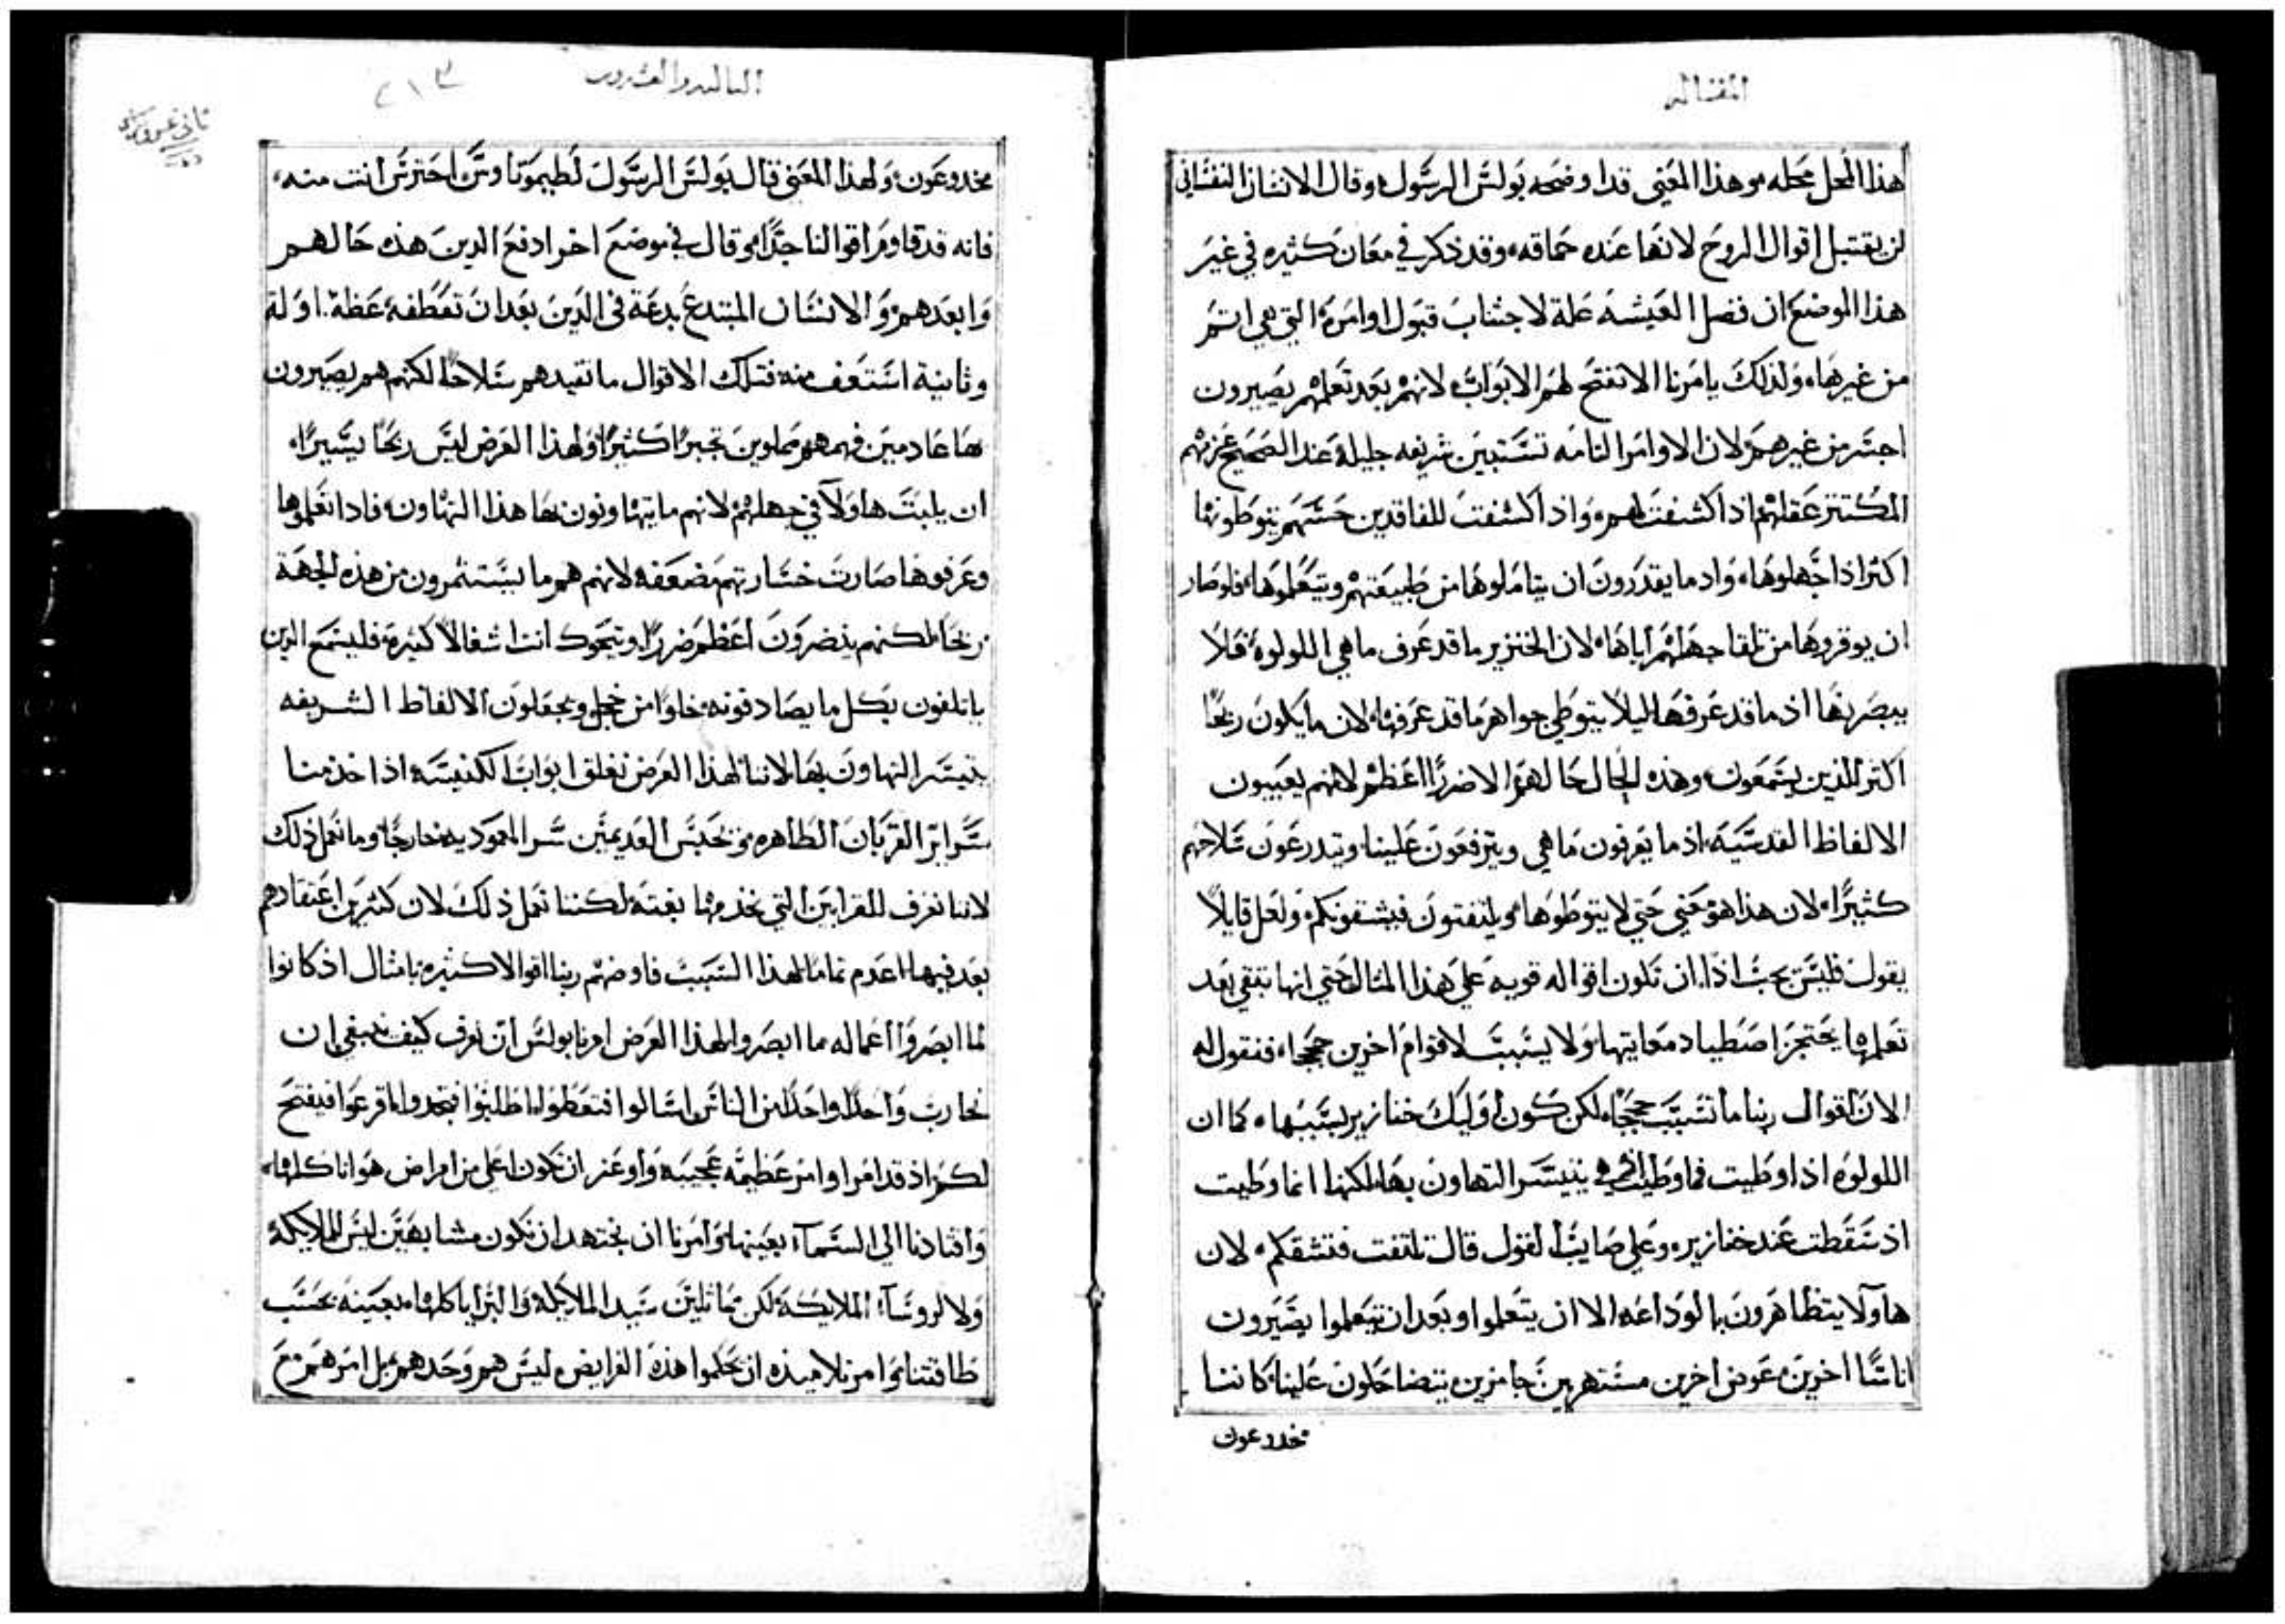 المقاله
هذا المحل محله وهذا المعني قد اوضحه بولس الرسول وقال الانسان النفساني
لن يقتبل اقوال الروح لانها عنده حماقه وقد ذكر في معان كثيره في غير
هذا الموضع ان فضل العيشه علة لاجتناب قبول اوامره التي هي اتم
من غيرها ولذلك يامرنا الا تفتح لهم الابواب لانهم بعد تعلمهم يصيرون
اجسر من غيرهم لان الاوامر التامه تستبين شريفه جليلة عند الصحيح عزمهم
المكتنز عقلهم اذا كشفت لهم واذا كشفت للفاقدين حسهم يتوطونها
اكثر اذا جهلوها واد ما يقدرون ان يتاملوها من طبيعتهم ويتعلموها فلو صار
ان يوقروها من تلقا جهلهم اياها لان الخنزير ما قد عرف ما هي اللولوة فلا
يبصرنها اذ ما قد عرفها ليلا يتوطي جواهر ما قد عرفها لان ما يكون ربحا
اكثر للذين يسمعون وهذه الحال حالهم الا ضررا اعظم لانهم يعيبون
الالفاظ القدسيه اذ ما يعرفون ما هي ويترفعون علينا ويتدرعون سلاحهم
كثيرا لان هذا هو معني حتي لا يتوطوها ويلتفتون فيشقونكم ولعل قايلا
يقول فليس يجب اذا ان تكون اقواله قويه علي هذا المثال حتي انها تبقي بعد
تعلمها يحتجز اصطياد معانيها ولا يسبب لاقوام اخرين حججا فنقول له
الان اقوال ربنا ما تسبب حججا لكن كون اوليك خنازير يسببها كما ان
اللولوه اذا وطيت فما وطيت هي يتيسر التهاون بها لكنها انما وطيت
اذ سقطت عند خنازير وعلي صايب القول قال تلتفت فتشقكم لان
هاولا يتظاهرون بالوداعه الا ان يتعلموا وبعد ان يتعلموا يصيرون
اناسا اخرين عوض اخرين مستهزين جامزين يتضاحكون علينا كاننا
مخدوعون
الثالثه والعشرون
٢١٣
مخدوعون ولهذا المعني قال بولس الرسول لطيموتاوس احترس انت منه
فانه قد قاوم اقوالنا جدا وقال في موضع اخر ادفع الدين هذه حالهم
وابعدهم والانسان المبتدع بدعة في الدين بعد ان تعظه عظة اولة
وثانية استعف منه فتلك الاقوال ما تفيدهم سلاحا لكنهم هم يصيرون
بها عادمين فهمهم مملوين تجبرا كثيرا ولهذا الغرض ليس ربحا يسيرا
ان يلبث هاولا في جهلهم لانهم ما يتهاونون بها هذا التهاون فاذا تعلموها
وعرفوها صارت خسارتهم مضعفه لانهم هم ما يستثمرون من هذه الجهة
ربحا لكنهم ينضرون اعظم ضررا ويتحوك انت اشغالا كثيرة فليسمع الذين
ياتلفون بكل ما يصادفونه خلوا من خجل ويجعلون الالفاظ الشريفه
يتيسر التهاون بها لاننا لهذا الغرض نغلق ابواب الكنيسه اذا خدمنا
سراير القربان الطاهره ونحبس العديمين سر المعموديه خارجا وما نعمل ذلك
لاننا نعرف للقرابين التي نخدمها بغتة لكننا نعمل ذلك لان كثيرين اعتقادهم
بعد فيها اعدم تماما لهذا السبب فاوضهم ربنا اقوالا كثيره بامثال اذ كانوا
لما ابصروا اعماله ما ابصروا لهذا الغرض امرنا بولس ان نعرف كيف ينبغي ان
نحارب واحدا واحدا من الناس اسالوا فتعطوا اطلبوا فتجدوا اقرعوا فيفتح
لكم اذ قد امر اوامر عظيمه عجيبه واوعز ان نكون اعلي من امراض هوانا كلها
واقتادنا الي السمآء بعينها وامرنا ان نجتهد ان نكون مشابهين ليس للملايكة
ولا لروسآء الملايكة لكن مماثلين سيد الملايكة والبرايا كلها بعينه بحسب
طاقتنا وامر تلاميذه ان يحكموا هذه الفرايض وليس هم وحدهم بل امرهم مع